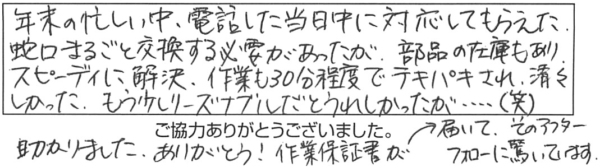 年末の忙しい中、電話した当日中に対応してもらえた。
蛇口まるごと交換する必要があったが、部品の在庫もあり、
スピーディに解決、作業も30分程度でテキパキされ、清々
しかった。もう少しリーズナブルだとうれしかったが……(笑)
ご協力ありがとうございました。
助かりました。ありがとう!作業保証書が
→届いて、そのアフター
フォローに驚いています。